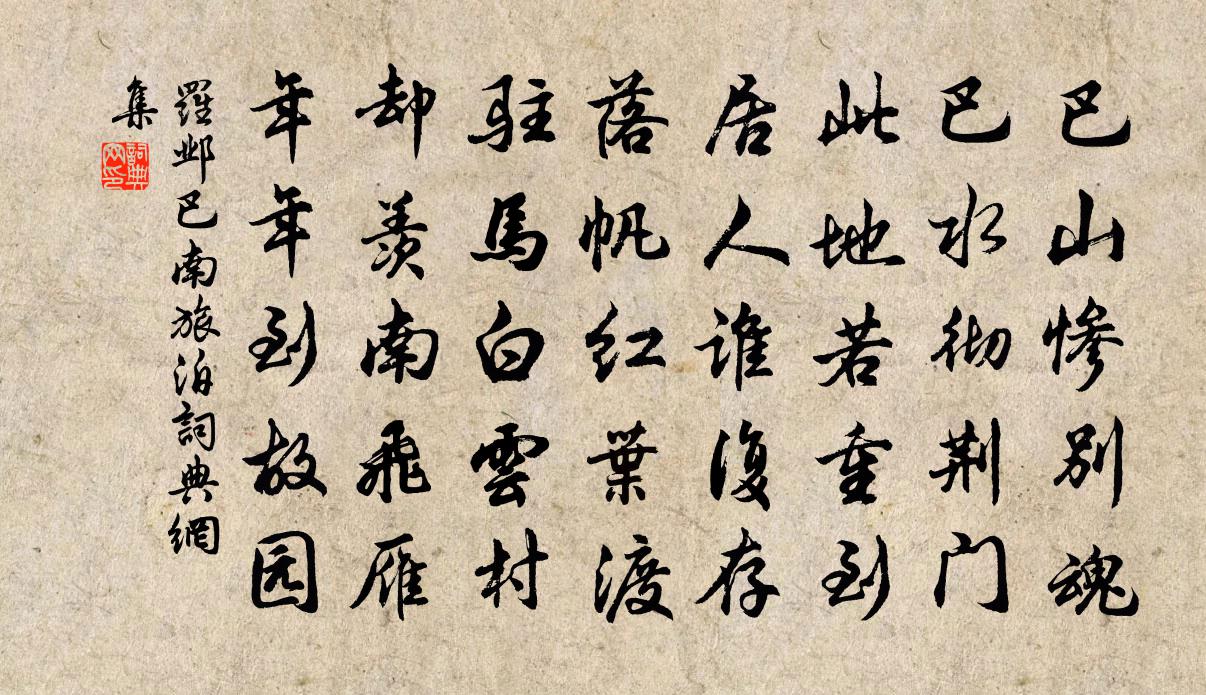 巴山惨别魂
巴水彻荆门
此地若重到
居人谁復存
落帆红葉渡
驻馬白雲村
却羨南飛雁
年年到故园
羅邺巴南旅泊詞典網
集
詞典
网印